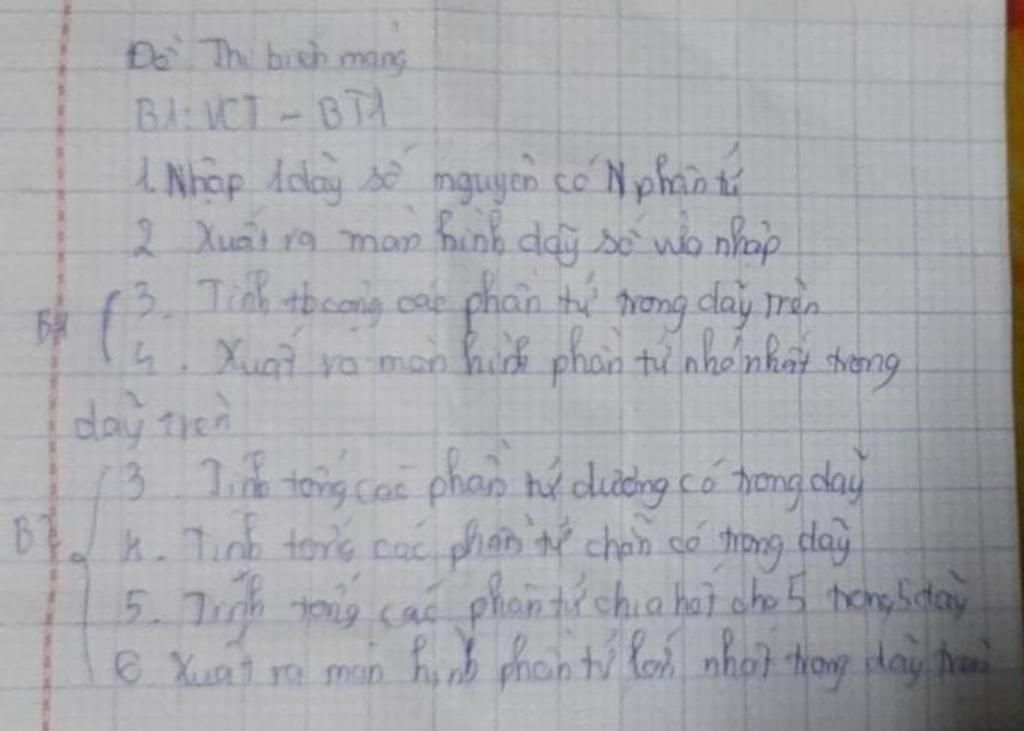 Đề Thi biến mảng
B1: VCT - BT1
1. Nhập 1 dãy số nguyên có N phần tử
2 Xuất ra màn hình dãy số vừa nhập
3. Tính tb cộng các phần tử trong dãy trên
4. Xuất ra màn hình phần tử nhỏ nhất trong
dãy trên
3 Tính tổng các phần tử dương có trong dãy
4. Tính tổng các phần tử chẵn có trong dãy
5. Tính tổng các phần tử chia hết cho 5 trong dãy
6 Xuất ra màn hình phần tử lớn nhất trong dãy trên